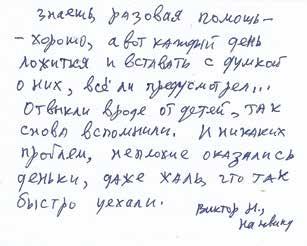 знаешь, разовая помощь –
– хорошо, а вот каждый день
ложиться и вставать с думкой
о них, всё ли предусмотрел...
Отвыкли вроде от детей, так
снова вспомнили. И никаких
проблем, неплохие оказались
деньки, даже жаль, что так
быстро уехали.
Виктор Н.,